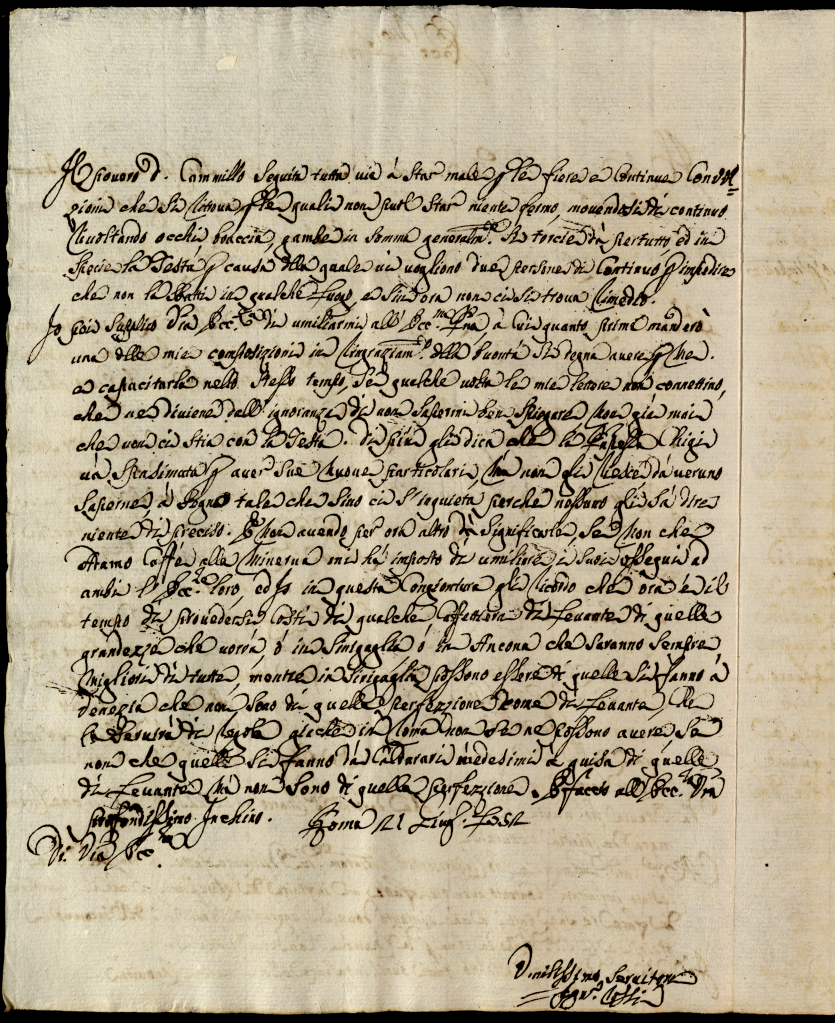 Il povero D. Cammillo Seguita tutta via à Star male p le fiere e Continue Convul=
zioni che Si ritrova, p le quali non può Star niente fermo, movendosi di continuo
rivoltando occhi, boaccia, gambe in Somma generalm.te Si torcie da pertutto ed in
Specie la Testa p causa della quale vi vogliono due persone di Continuo p impedire
che non la Sbatti in qualche luogo, e Sin ora non ci Si trova rimedio.
Io poi Supplico V̄ra Ecc.za di umiliarmi all' Ecc.ma à Cui quanto prima manderò
una delle mie composizioni in ringraziam.to della buontà Si degna avere p Me.
e capacitarla nello Stesso tempo, Se qualche volta le mie lettere non connettino,
che ne diviene dall' ignoranza di non Sapermi ben Spiegare, Non già mai
che non ci Stia con la Testa. Di più gli dico che la Chigi
và p aver Sue Nuove particolari, Mà non gli riesce da veruno
Saperne, à Segno tale che Sino ci S' inquieta perche nessuno gli Sà dire
niente di preciso. E Non avendo per ora altro da Significarle, Se Non che
Caffè alla Minerva mi hà imposto di umiliare i Suoi ossequi ad
ambi l' Ecc.ze loro, ed Io in questa Congiontura gli ricordo che ora è il
tempo di provedersi Costì di qualche Caffettiera di Levante di quelle
grandezze che vorrà ò in Sinigaglia ò in Ancona che Saranno Sempre
Migliori di tutte, mentre in Sinigaglia possono essere di quelle Si fanno à
Venezia che non Sono di quella perfezzione Come di Levante, Che
le Servirà di regola giache in Roma non Se ne possono avere Se
non che quelle Si fanno da Caldarari medesimi à guisa di quelle
di Levante Mà non Sono di quella perfezzione. E faccio all' Ecc.za V̄ra
profondissimo Inchino.    Roma 21 Lug. 1752
Di V̄ra Ecc.za
Umilissimo Servitore